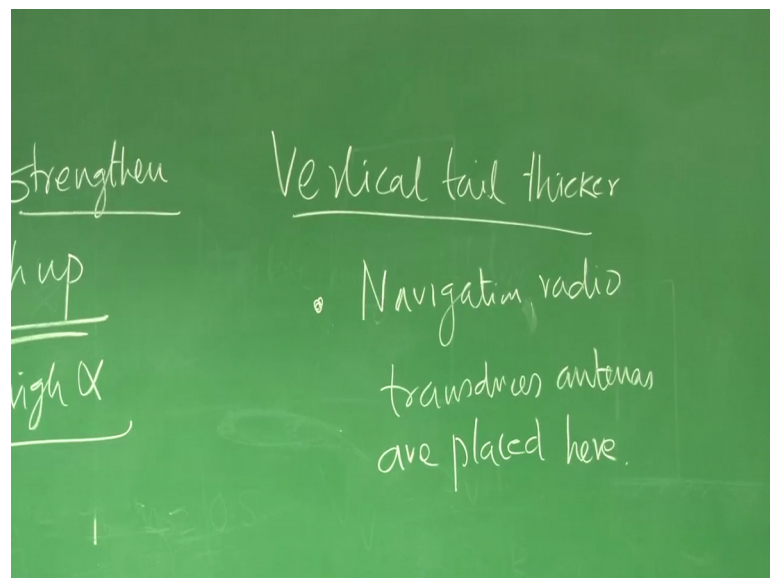 strengthen
h up
igh α
Vertical tail thicker
• Navigation, radio
transduces antenas
are placed here.